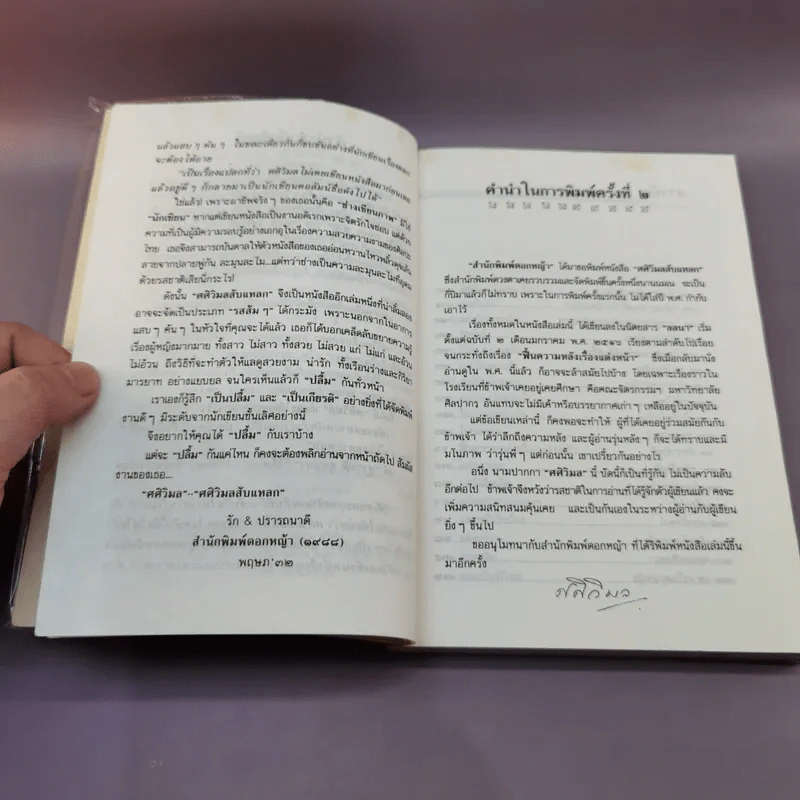 แล้วแสบ ๆ คัน ๆ ในขณะเดียวกันก็ขบขันอย่างที่นักเขียนเรื่องตลก
จะต้องได้อาย
"เป็นเรื่องแปลกที่ว่า ศศิวิมลไม่เคยเขียนหนังสือมาก่อนเลย
แล้วอยู่ดี ๆ ก็กลายมาเป็นนักเขียนคอลัมน์ชื่อดังไปได้"
ใช่แล้ว! เพราะอาชีพจริง ๆ ของเธอนั้นคือ "ช่างเขียนภาพ" มิใช่
"นักเขียน" หากแต่เขียนหนังสือเป็นงานอดิเรกเพราะจิตรักใจชอบ แต่ด้วย
ความที่เป็นผู้มีความรอบรู้อย่างเอกอุในเรื่องความสวยความงามของศิลปะ
ไทย เธอจึงสามารถบันดาลให้ตัวหนังสือของเธออ่อนหวานไหวพลิ้วดุจเส้น
สายจากปลายพู่กัน ละมุนละไม...แต่ทว่าช่างเป็นความละมุนละไมที่อุดม
ด้วยรสชาติเสียนี่กระไร!
ดังนั้น "ศศิวิมลสับแหลก" จึงเป็นหนังสืออีกเล่มหนึ่งที่น่าลิ้มลอง
อาจจะจัดเป็นประเภท "รสส้ม ๆ" ได้กระมัง เพราะนอกจากในอาการ
แสบ ๆ คัน ๆ ในหัวใจที่คุณจะได้แล้ว เธอก็ได้บอกเคล็ดลับขยายความรู้
เรื่องผู้หญิงมากมาย ทั้งสาว ไม่สาว ทั้งสวย ไม่สวย แก่ ไม่แก่ และอ้วน
ไม่อ้วน ถึงวิธีที่จะทำตัวให้แลดูสวยงาม น่ารัก ทั้งเรือนร่างและกิริยา
มารยาท อย่างแยบยล จนใครเห็นแล้วก็ "ปลื้ม" กันทั่วหน้า
เราเองก็รู้สึก "เป็นปลื้ม" และ "เป็นเกียรติ" อย่างยิ่งที่ได้จัดพิมพ์
งานดี ๆ มีระดับจากนักเขียนชั้นเลิศอย่างนี้
จึงอยากให้คุณได้ "ปลื้ม" กับเราบ้าง
แต่จะ "ปลื้ม" กันแค่ไหน ก็คงจะต้องพลิกอ่านจากหน้าถัดไป สัมผัส
งานของเธอ...
"ศศิวิมล"--"ศศิวิมลสับแหลก"
รัก & ปรารถนาดี
สำนักพิมพ์ดอกหญ้า (๑๙๘๘)
พฤษภ'๓๒
คำนำในการพิมพ์ครั้งที่ ๒
"สำนักพิมพ์ดอกหญ้า" ได้มาขอพิมพ์หนังสือ "ศศิวิมลสับแหลก"
ซึ่งสำนักพิมพ์ดวงตาเคยรวบรวมและจัดพิมพ์ขึ้นครั้งหนึ่งนานนมมา จะเป็น
กี่ปีมาแล้วก็ไม่ทราบ เพราะในการพิมพ์ครั้งแรกนั้น ไม่ได้ใส่ปี พ.ศ. กำกับ
เอาไว้
เรื่องทั้งหมดในหนังสือเล่มนี้ ได้เขียนลงในนิตยสาร "ลลนา" เริ่ม
ตั้งแต่ฉบับที่ ๒ เดือนมกราคม พ.ศ. ๒๕๑๖ เรียงตามลำดับไปเรื่อย
จนกระทั่งถึงเรื่อง "ฟื้นความหลังเรื่องแต่งหน้า" ซึ่งเมื่อกลับมานั่ง
อ่านดูใน พ.ศ. นี้แล้ว ก็อาจจะล้าสมัยไปบ้าง โดยเฉพาะเรื่องราวใน
โรงเรียนที่ข้าพเจ้าเคยอยู่เคยศึกษา คือคณะจิตรกรรมฯ มหาวิทยาลัย
ศิลปากร อันแทบจะไม่มีเค้าหรือบรรยากาศเก่า ๆ เหลืออยู่ในปัจจุบัน
แต่ข้อเขียนเหล่านี้ ก็คงพอจะทำให้ ผู้ที่ได้เคยอยู่ร่วมสมัยกันกับ
ข้าพเจ้า ได้รำลึกถึงความหลัง และผู้อ่านรุ่นหลัง ๆ ก็จะได้ทราบและมี
มโนภาพ ว่ารุ่นพี่ ๆ แต่ก่อนนั้น เขาเปรี้ยวกันอย่างไร
อนึ่ง นามปากกา "ศศิวิมล" นี้ บัดนี้ก็เป็นที่รู้กัน ไม่เป็นความลับ
อีกต่อไป ข้าพเจ้าจึงหวังว่ารสชาติในการอ่านที่ได้รู้จักตัวผู้เขียนแล้ว คงจะ
เพิ่มความสนิทสนมคุ้นเคย และเป็นกันเองในระหว่างผู้อ่านกับผู้เขียน
ยิ่ง ๆ ขึ้นไป
ขออนุโมทนากับสำนักพิมพ์ดอกหญ้า ที่ได้ริพิมพ์หนังสือเล่มนี้ขึ้น
มาอีกครั้ง
ศศิวิมล